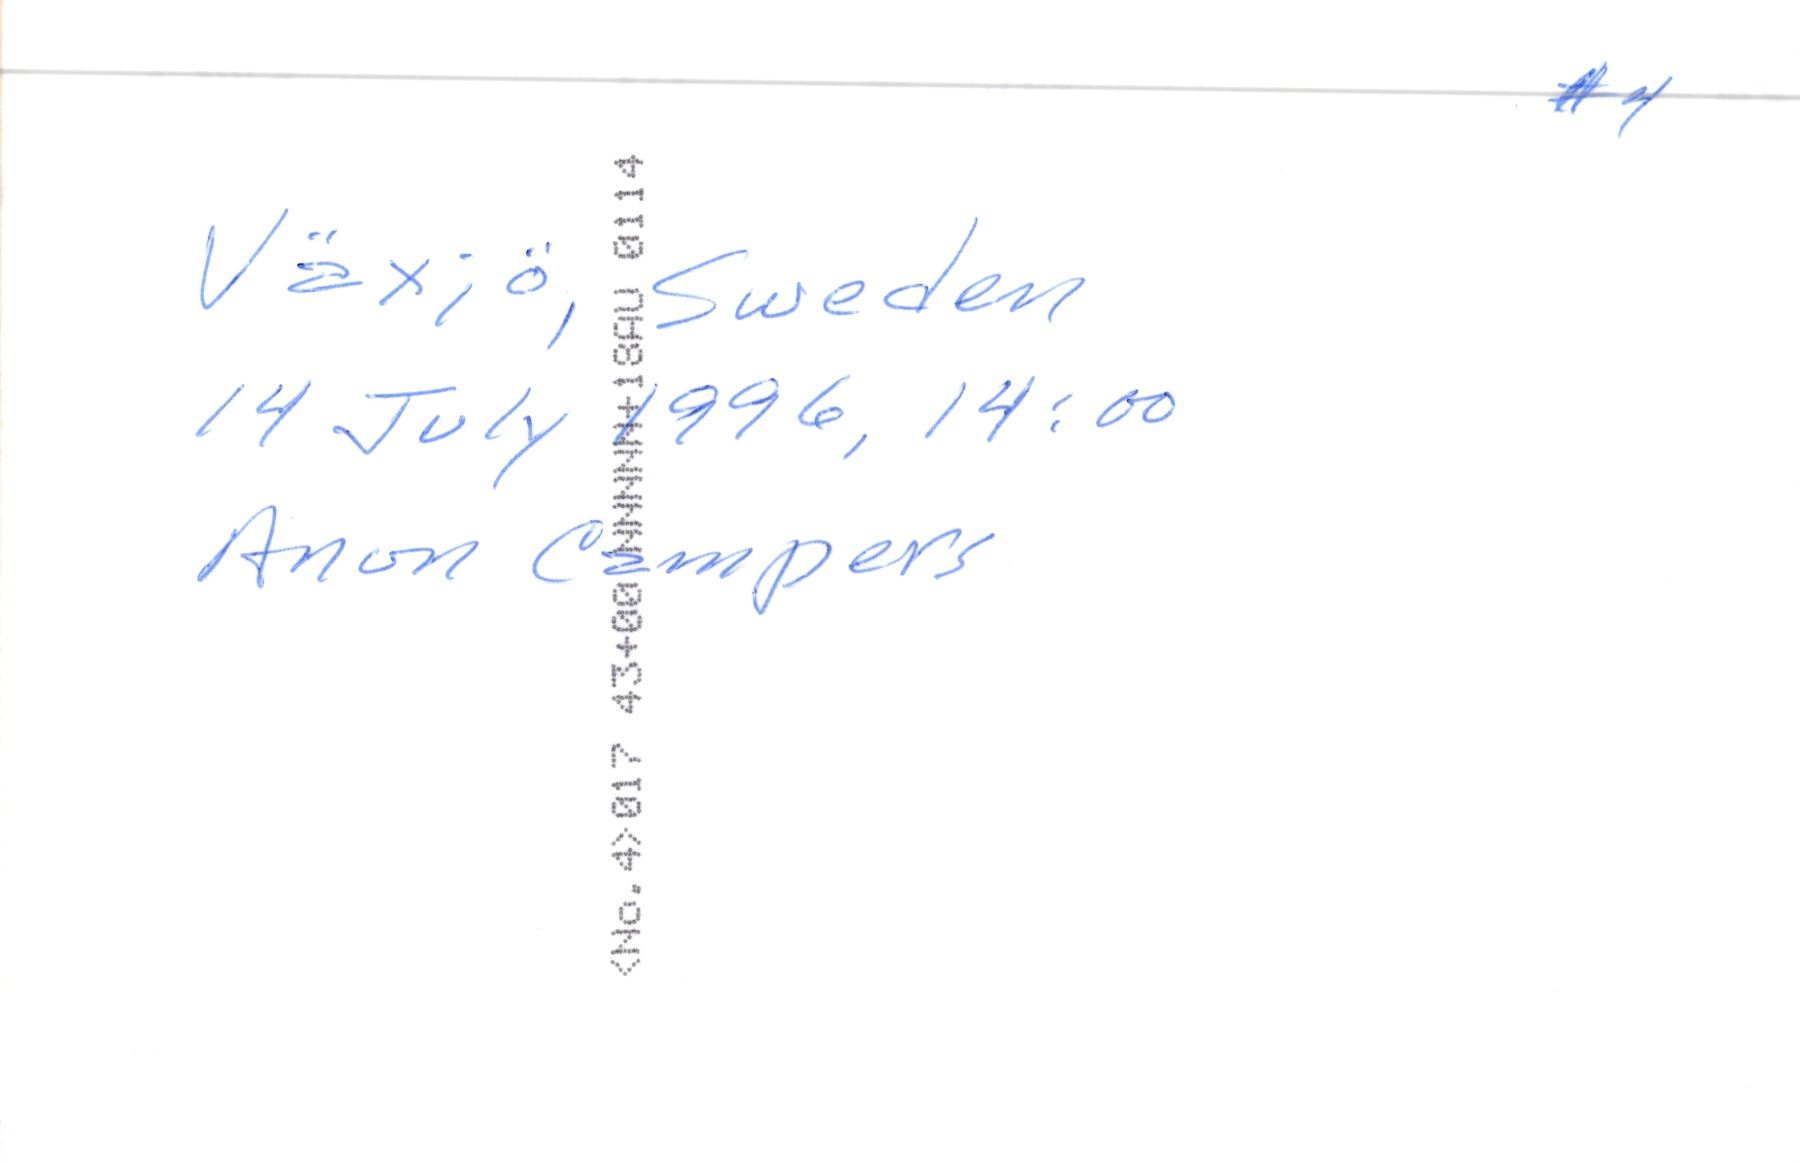 #4
Växjö, Sweden
14 July 1996, 14:00
Anon Campers
<No.4>017 43+00 NNNNN+18AU 0114